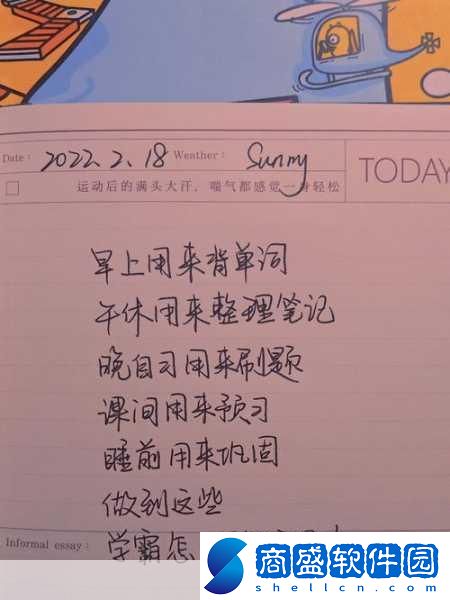 Date: 2022.2.18 Weather: Sunny
TODAY
运动后的满头大汗，喘气都感觉一身轻松
早上用来背单词
午休用来整理笔记
晚自习用来刷题
课间用来预习
睡前用来巩固
做到这些
Informal essay:
学霸怎
商盛软件园
shellcn.com